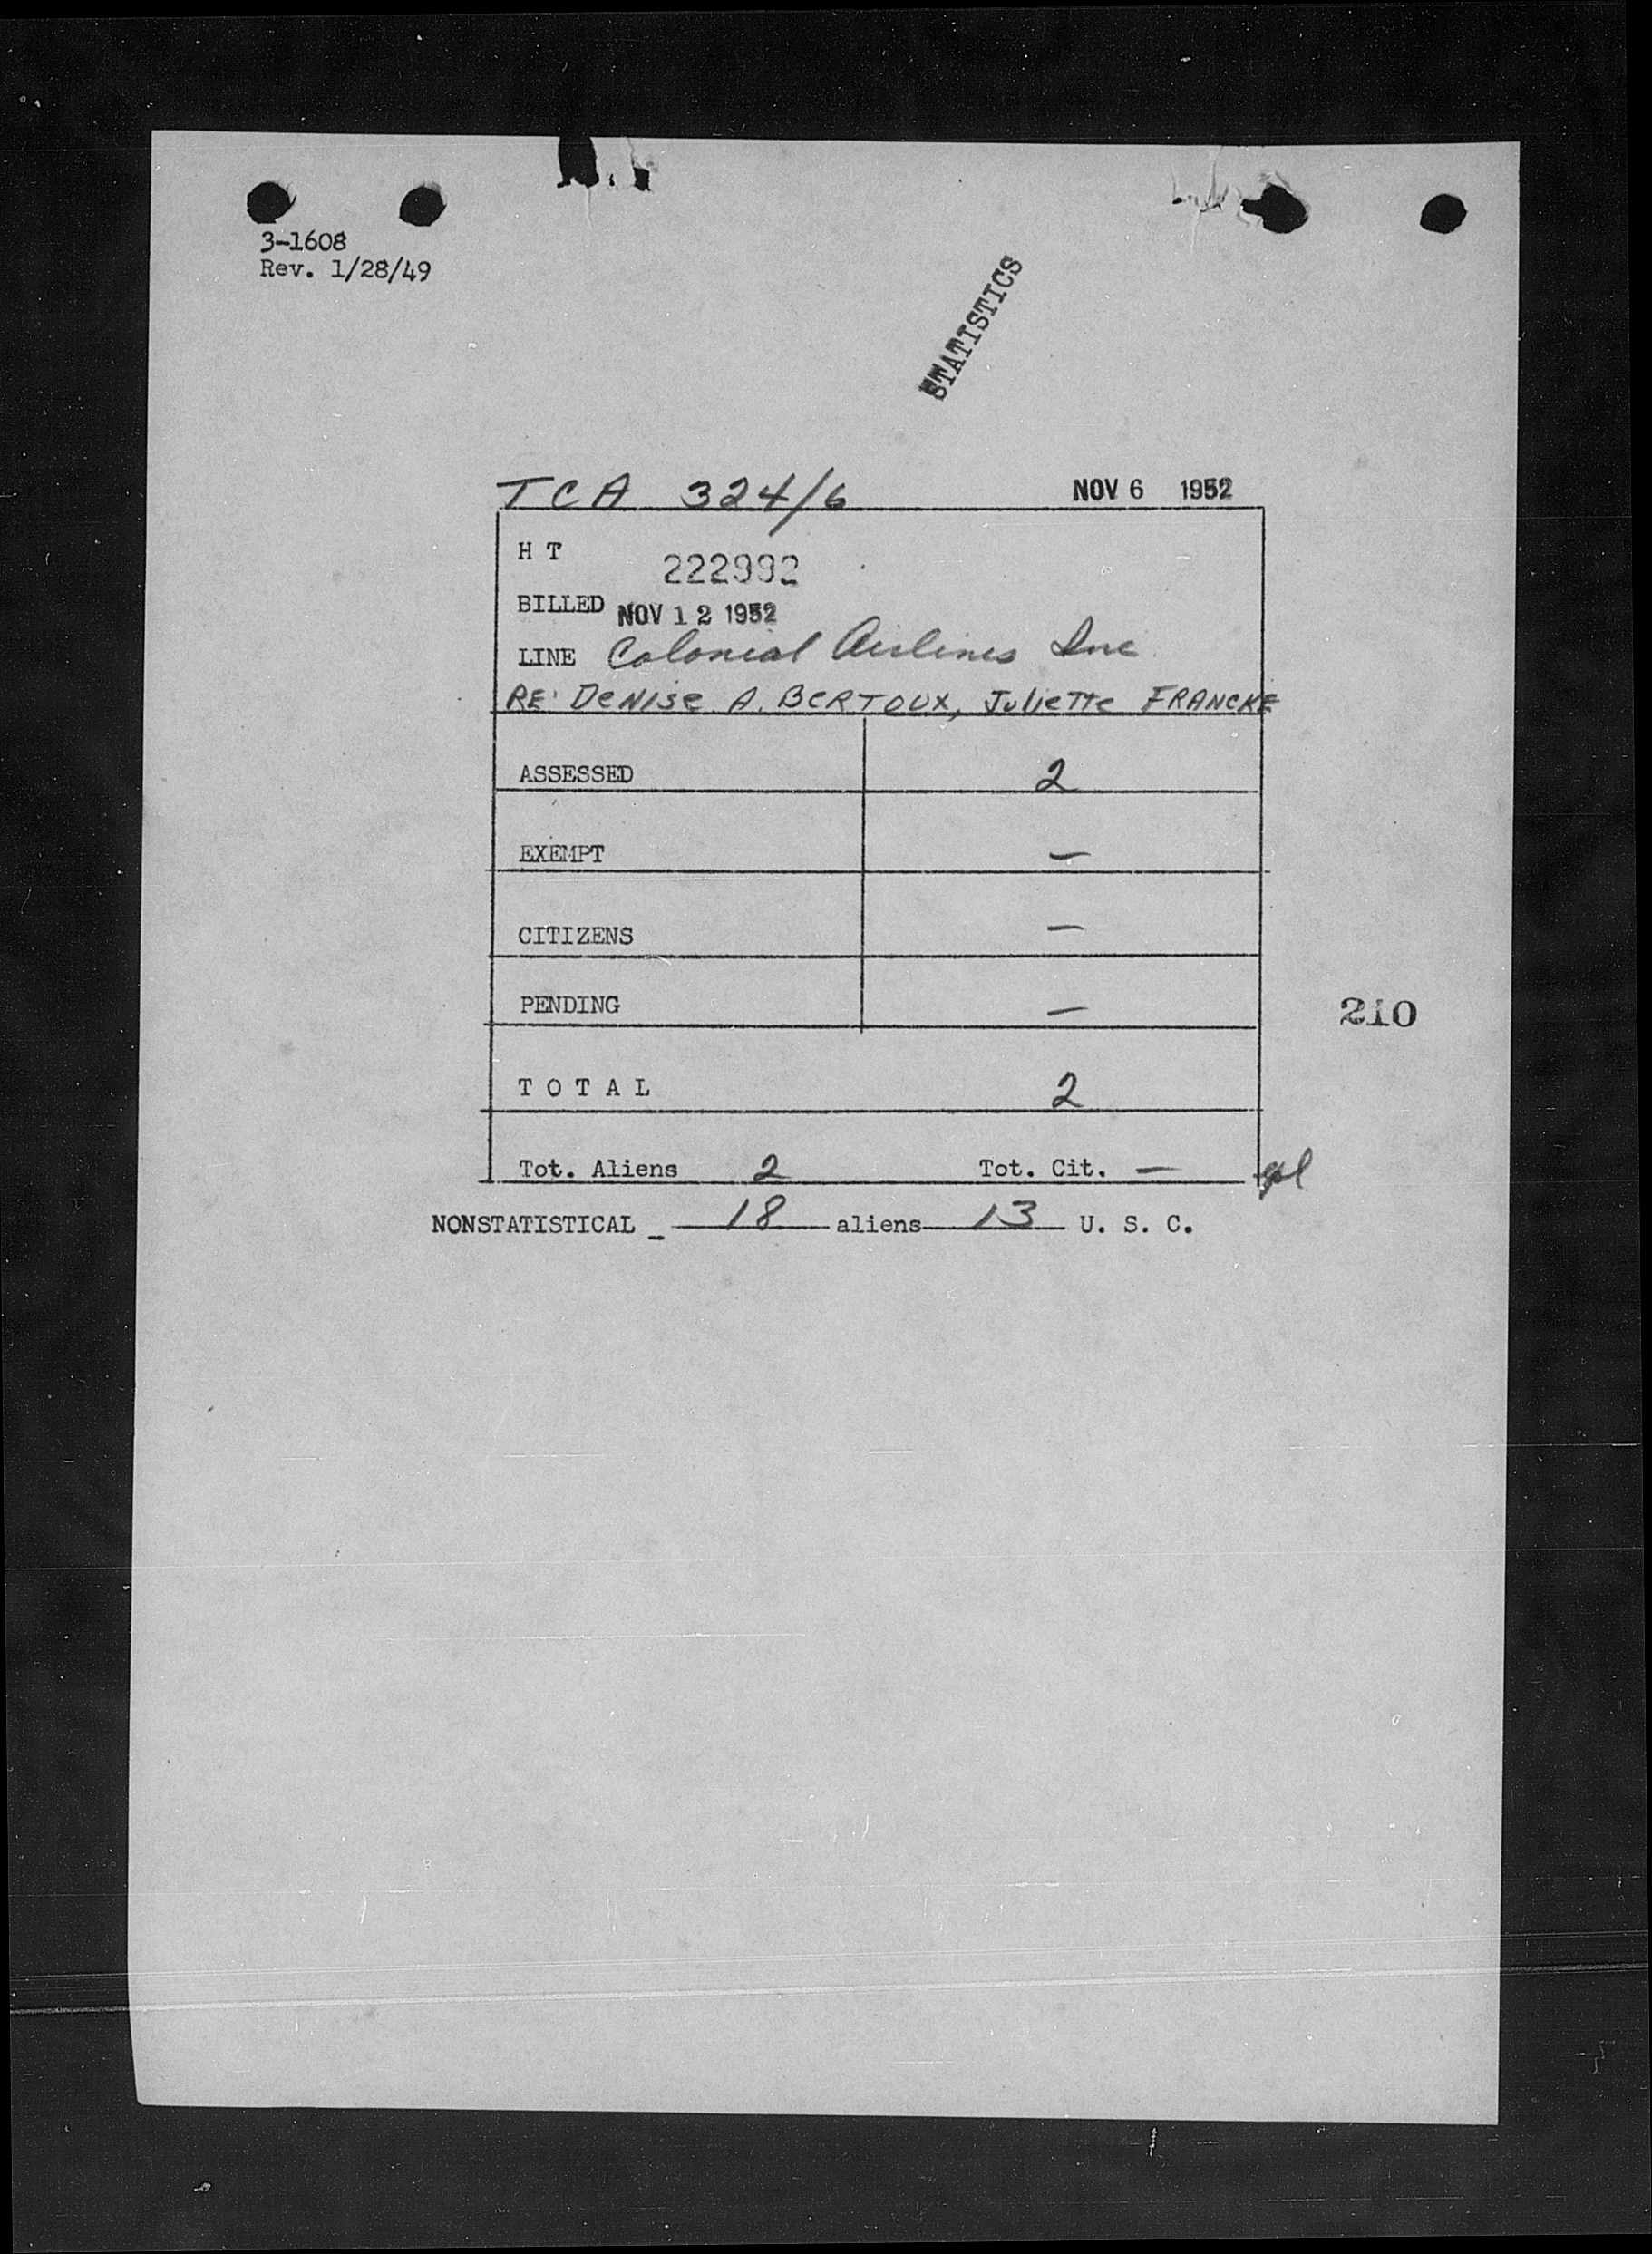 3-1608
Rev. 1/28/49
STATISTICS
TCA 324/6 NOV 6 1952
H T 222992
BILLED NOV 12 1952
LINE Colonial Airlines Inc
RE: DENISE A. BERTOUX, JULIETTE FRANCKE
ASSESSED 2
EXEMPT —
CITIZENS —
PENDING —
210
T O T A L 2
Tot. Aliens 2 Tot. Cit. —
NONSTATISTICAL - 18 aliens 13 U. S. C.